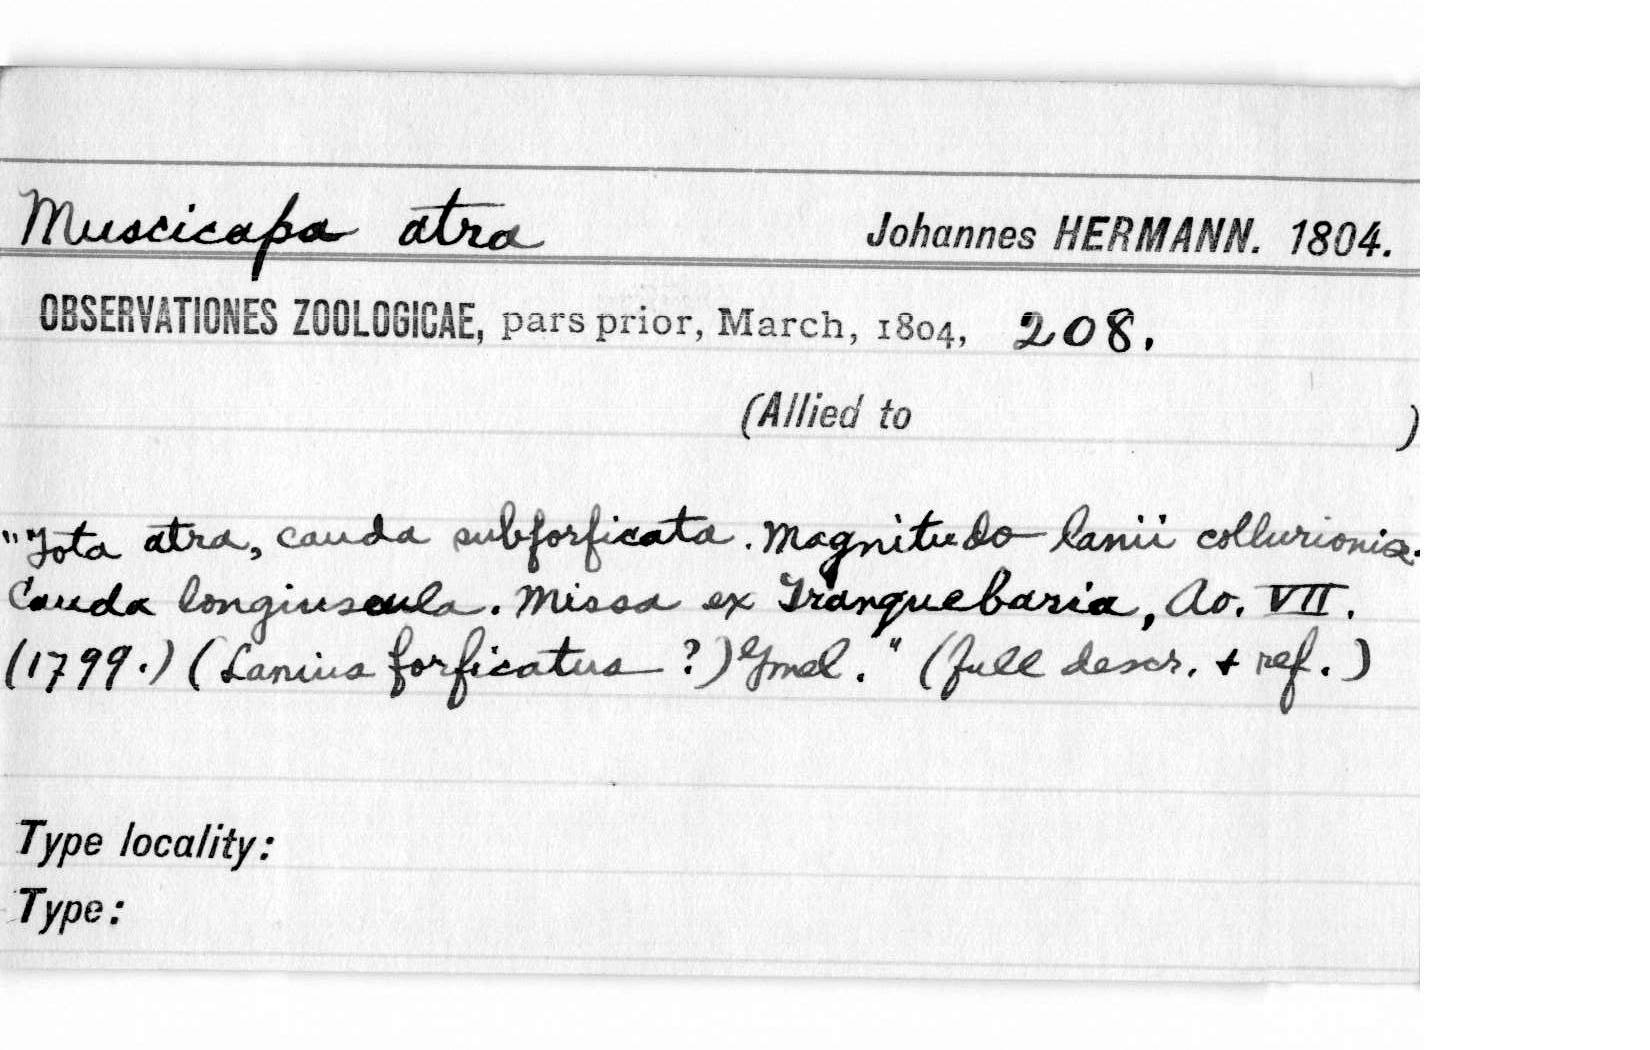 Muscicapa atra Johannes HERMANN. 1804.
OBSERVATIONES ZOOLOGICAE, pars prior, March, 1804, 208.
(Allied to )
"Tota atra, cauda subforficata. Magnitudo lanii collurionis.
Cauda longiuscula. Missa ex Tranquebaria, Ao. VII.
(1799.) (Lanius forficatus ?) Gmel." (full descr. + ref.)
Type locality:
Type: